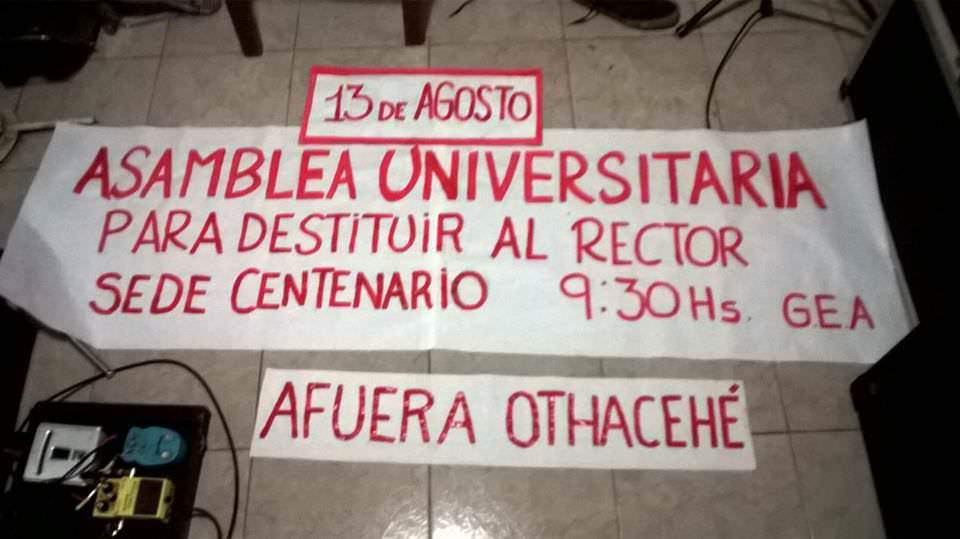 13 DE AGOSTO
ASAMBLEA UNIVERSITARIA
PARA DESTITUIR AL RECTOR
SEDE CENTENARIO 9:30 Hs. G.E.A
AFUERA OTHACEHÉ